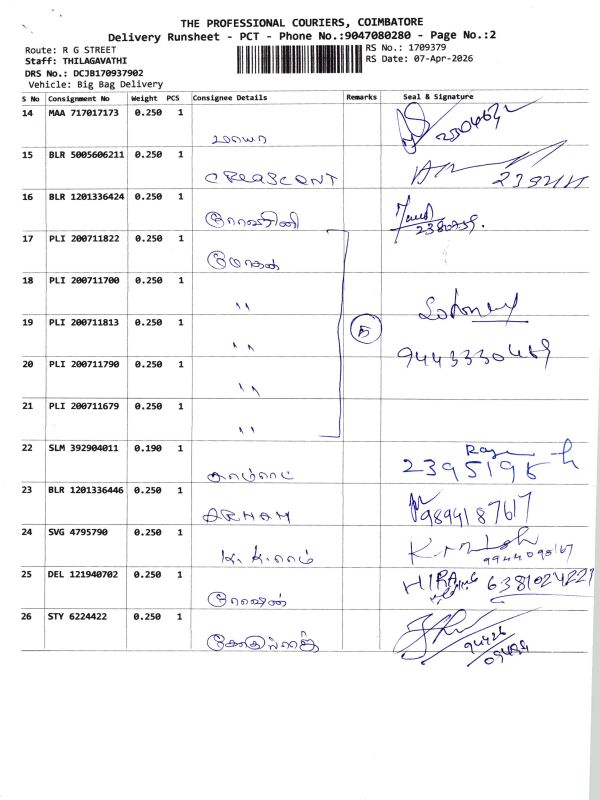 THE PROFESSIONAL COURIERS, COIMBATORE
Delivery Runsheet - PCT - Phone No.:9047080280 - Page No.:2
Route: R G STREET
RS No.: 1709379
Staff: THILAGAVATHI
RS Date: 07-Apr-2026
DRS No.: DCJB170937902
Vehicle: Big Bag Delivery
S No Consignment No Weight PCS Consignee Details Remarks Seal & Signature
14 MAA 717017173 0.250 1
15 BLR 5005606211 0.250 1
CREASCONT
16 BLR 1201336424 0.250 1
17 PLI 200711822 0.250 1
மோகன்
18 PLI 200711700 0.250 1
"
19 PLI 200711813 0.250 1
"
9443330469
20 PLI 200711790 0.250 1
"
21 PLI 200711679 0.250 1
"
22 SLM 392904011 0.190 1
23 BLR 1201336446 0.250 1
ARHAM
9894187617
24 SVG 4795790 0.250 1
K. K. ராம்
25 DEL 121940702 0.250 1
HIRA 6381024221
ரோஷன்
26 STY 6224422 0.250 1